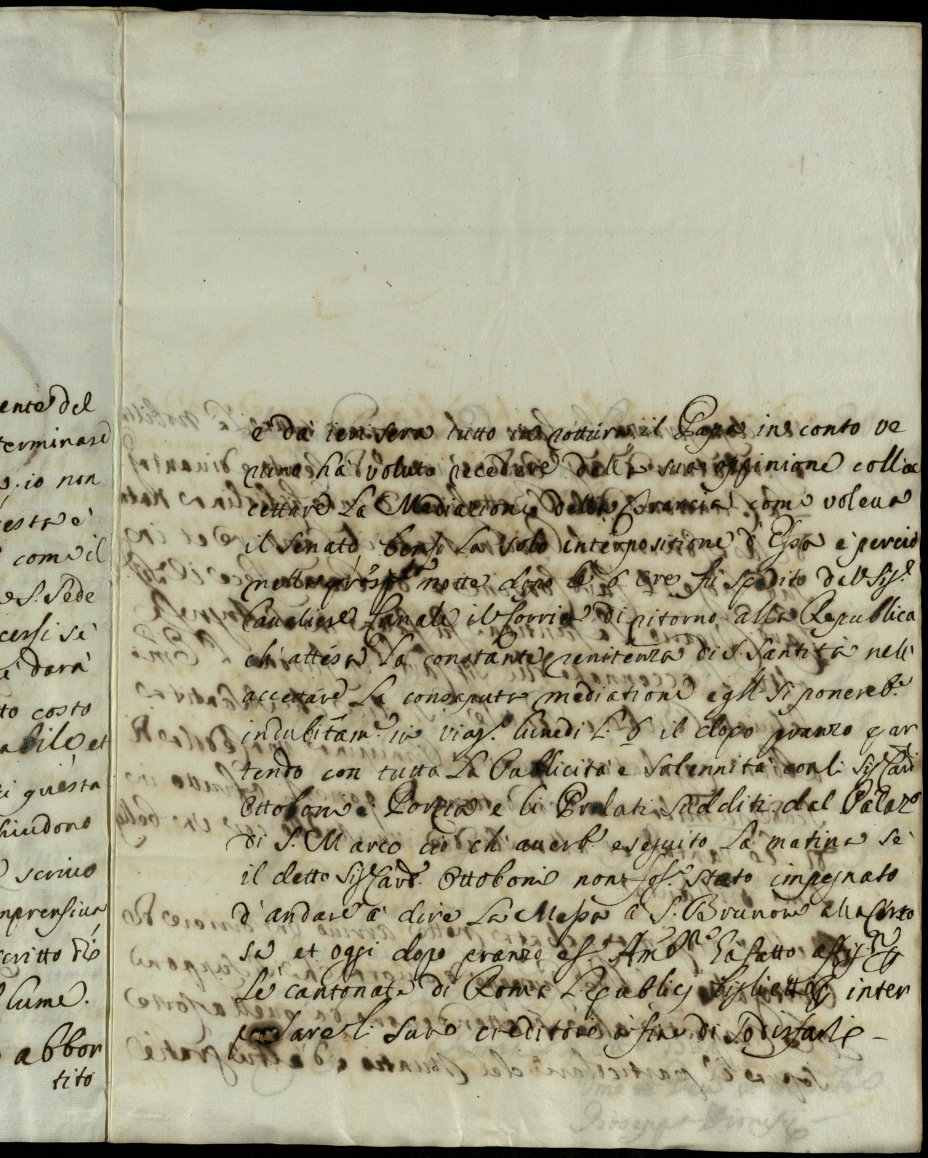 ente del
terminare
io non
esta è
come il
S. Sede
cersi se
e darà
to costo
abile et
questa
hiudono
scrivo
mprensiva
critto
lume.
abbor
tito
e da ieri sera tutto in rottura il Papa in conto ve
runo hà voluto recedere della sua oppinione coll'ac
cettare La Mediazione della Francia come voleva
il Senato bensi La solo interpositione d'Essa e perciò
notte dopo le 6 ore fù spedito dal Sigr.
Cavaliere Canale il Corriere di ritorno alla Republica
ch'attesa La constante renitenza di S. Santità nell'
accettare La consaputa mediatione egli si ponereb.e
indubitam.e in viag.o lunedi il dopo pranzo par
tendo con tutta La Publicità e Solennità con li Sig.ri Card.
Ottoboni e Porzia e li Prelati sudditi dal Palaz.o
di S. Marco ciò ch'avereb. eseguito La matina se
il detto Sig. Card. Ottoboni non fos. stato impegnato
d'andare à dire La Messa à S. Brunone alla Certo
sa et oggi dopo pranzo Amb.re hà fatto
Le cantonate di Roma Publici Biglietti inter
creditore à fine di
Giuseppe Dionisi